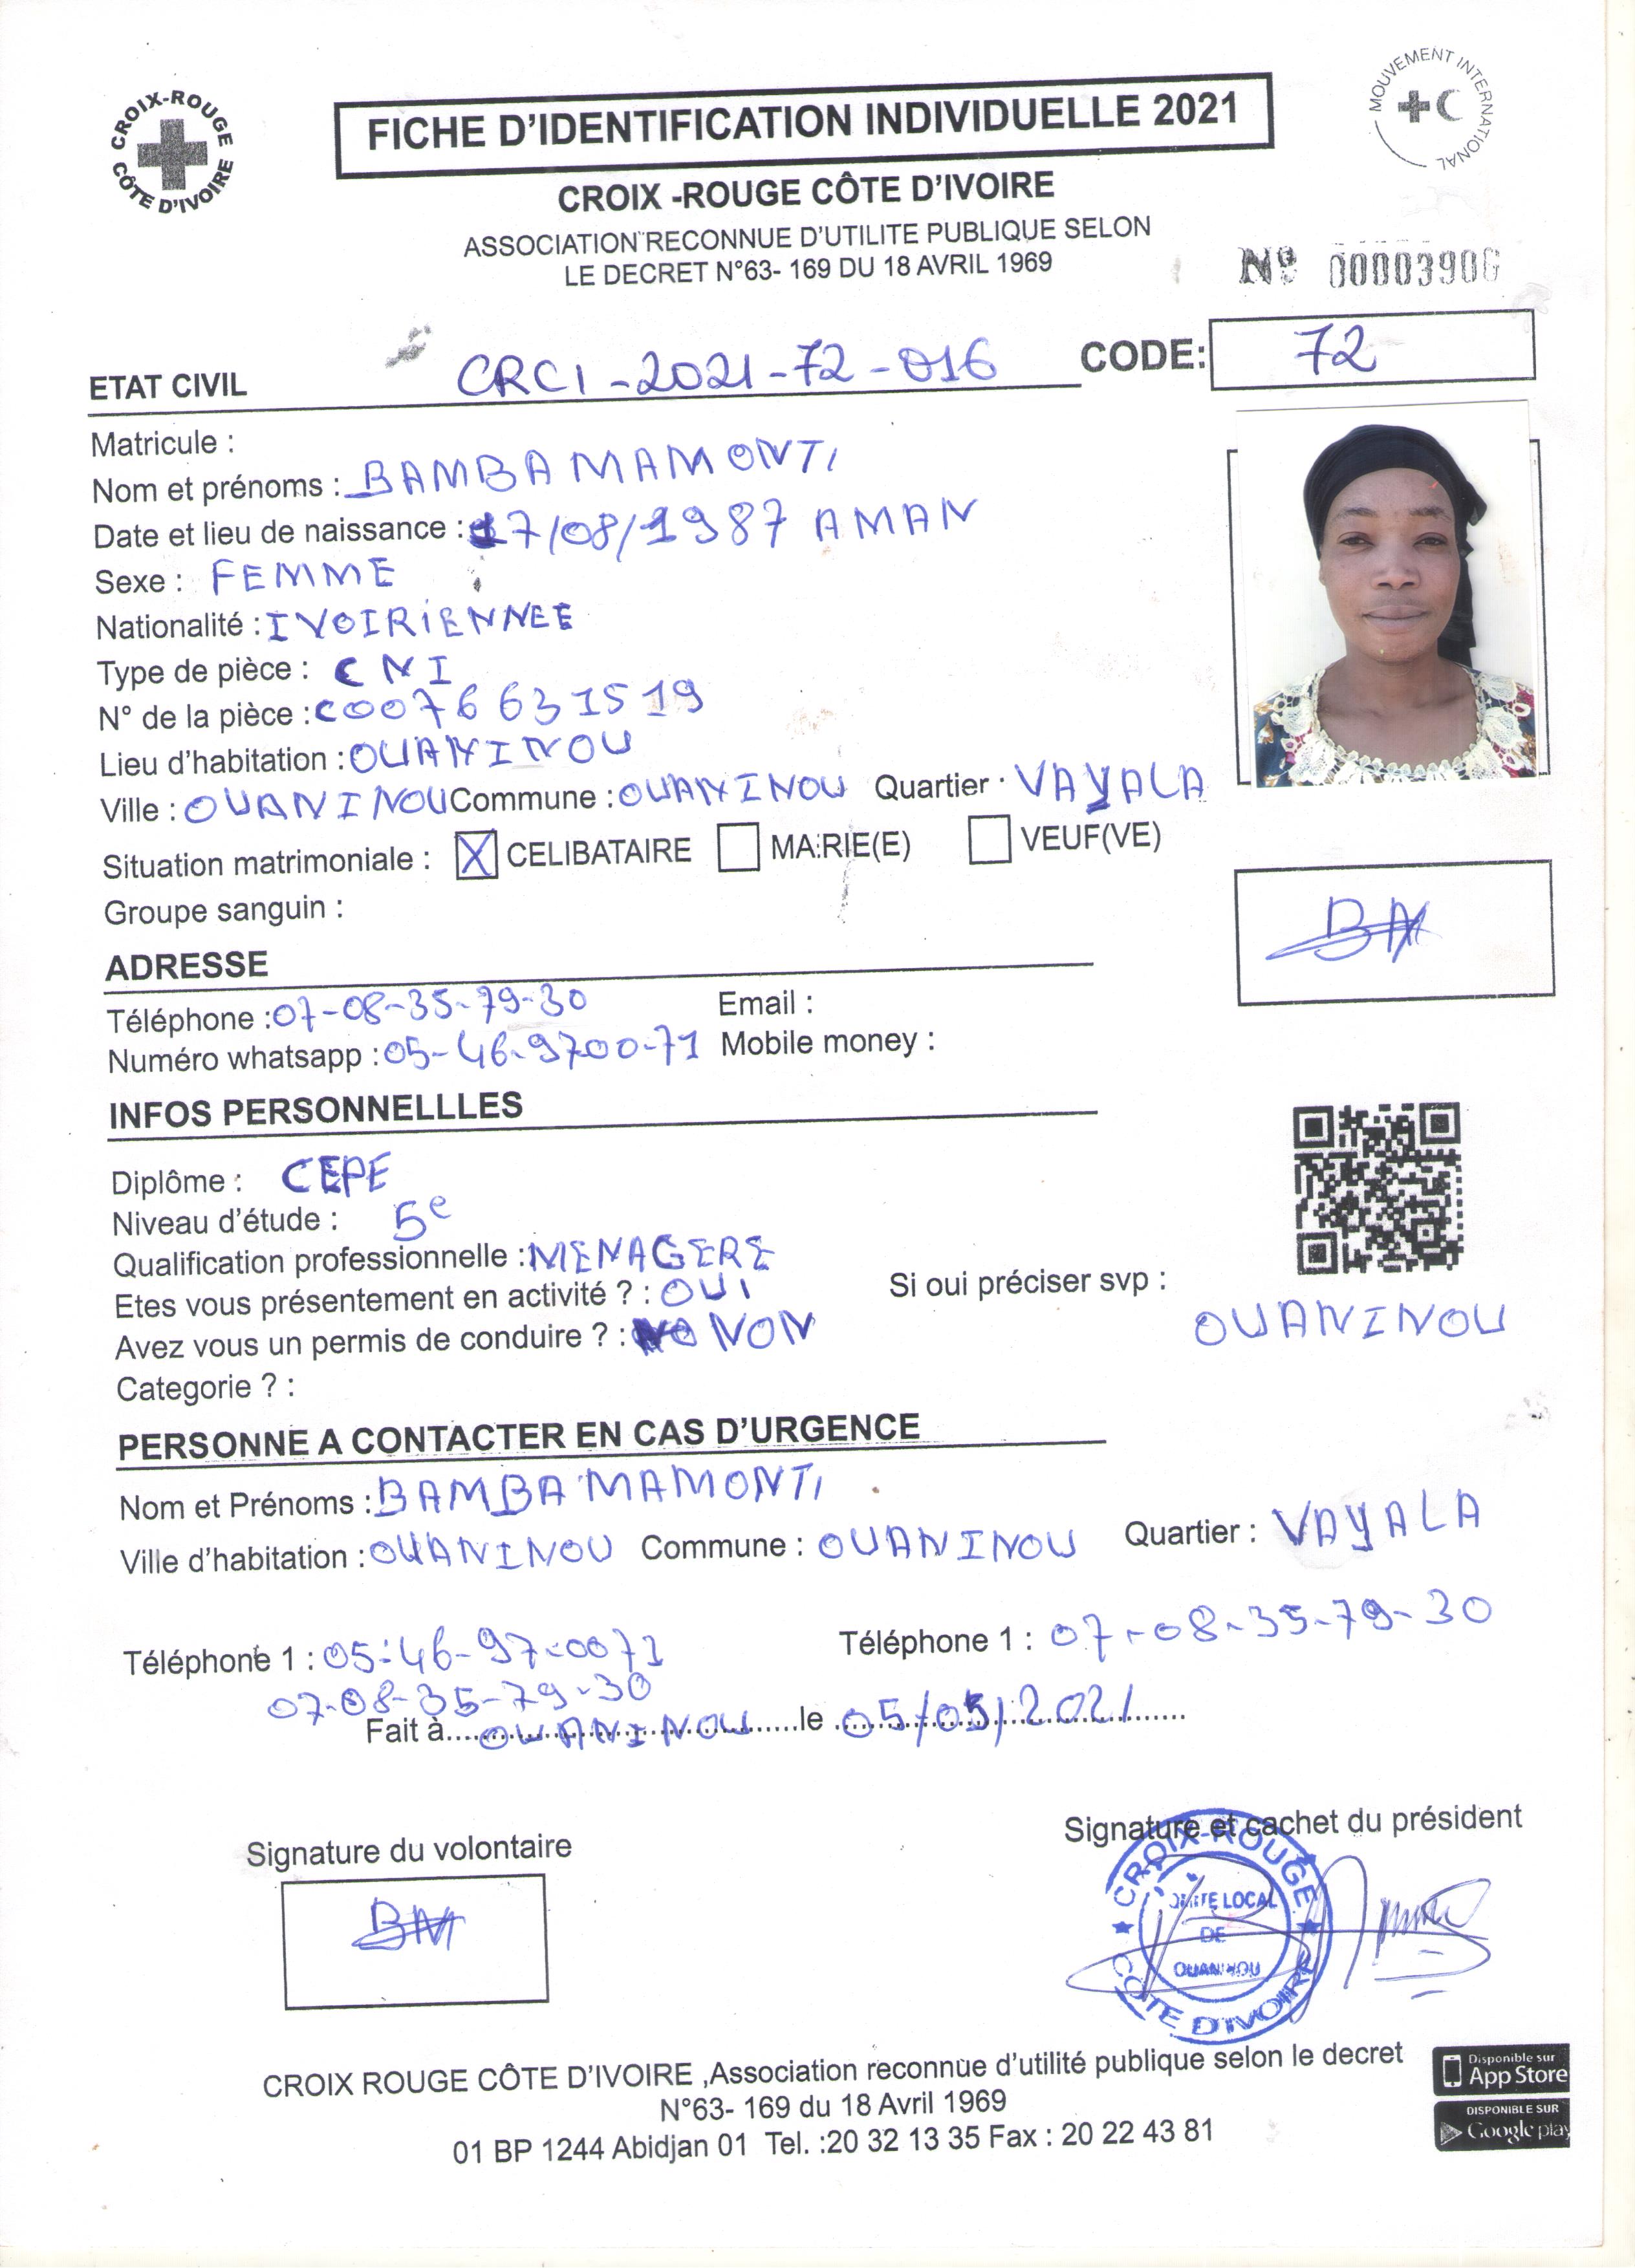 CROIX-ROUGE
CÔTE D'IVOIRE
MOUVEMENT INTERNATIONAL
FICHE D'IDENTIFICATION INDIVIDUELLE 2021
CROIX -ROUGE CÔTE D'IVOIRE
ASSOCIATION RECONNUE D'UTILITE PUBLIQUE SELON
LE DECRET N°63- 169 DU 18 AVRIL 1969
Nº 00003906
ETAT CIVIL CRCI-2021-72-016 CODE: 72
Matricule :
Nom et prénoms : BAMBA MAMONTI
Date et lieu de naissance : 17/08/1987 AMAN
Sexe : FEMME
Nationalité : IVOIRIENNEE
Type de pièce : CNI
N° de la pièce : C0076631519
Lieu d'habitation : OUANINOU
Ville : OUANINOU Commune : OUANINOU Quartier : VAYALA
Situation matrimoniale : X CELIBATAIRE MARIE(E) VEUF(VE)
Groupe sanguin :
BM
ADRESSE
Téléphone : 07-08-35-79-30 Email :
Numéro whatsapp : 05-46-9700-71 Mobile money :
INFOS PERSONNELLLES
Diplôme : CEPE
Niveau d'étude : 5e
Qualification professionnelle : MENAGERE
Etes vous présentement en activité ? : OUI Si oui préciser svp :
OUANINOU
Avez vous un permis de conduire ? : NON
Categorie ? :
PERSONNE A CONTACTER EN CAS D'URGENCE
Nom et Prénoms : BAMBA MAMONTI
Ville d'habitation : OUANINOU Commune : OUANINOU Quartier : VAYALA
Téléphone 1 : 05-46-97-0071 Téléphone 1 : 07-08-35-79-30
07-08-35-79-30
Fait à OUANINOU le 05/05/2021
Signature du volontaire Signature et cachet du président
BM
CROIX-ROUGE
COMITE LOCAL
DE
OUANINOU
CÔTE D'IVOIRE
CROIX ROUGE CÔTE D'IVOIRE ,Association reconnue d'utilité publique selon le decret
N°63- 169 du 18 Avril 1969
01 BP 1244 Abidjan 01 Tel. :20 32 13 35 Fax : 20 22 43 81
Disponible sur
App Store
DISPONIBLE SUR
Google play